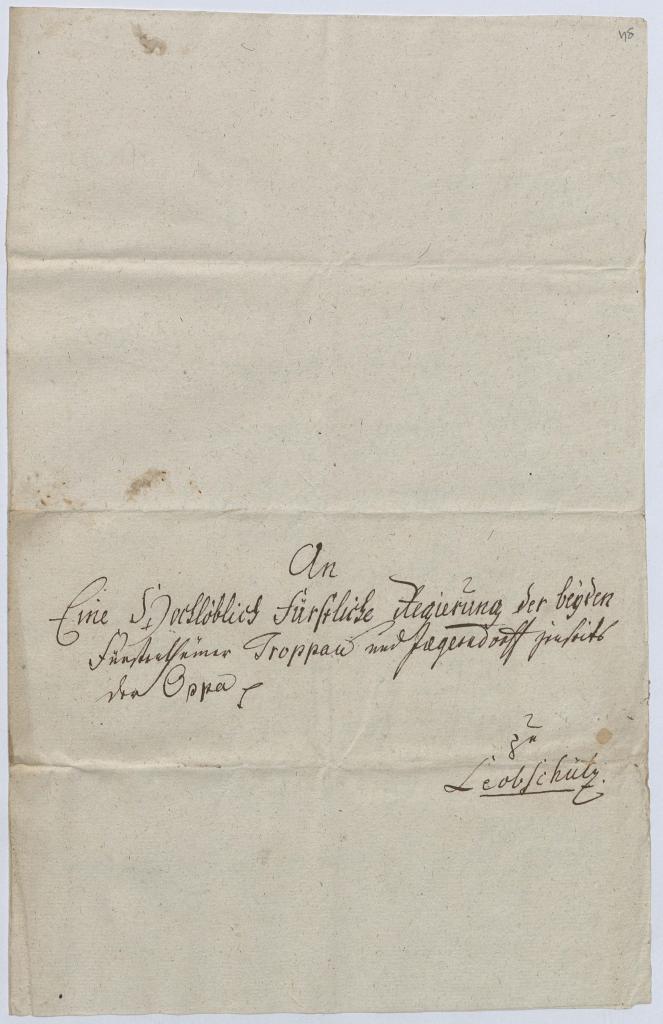 48
An
Eine Hochlöblich Fürstliche Regierung der beyden
Fürstenthümer Troppau und Jægerndorff jenseits
der Oppa
zu
Leobschütz.